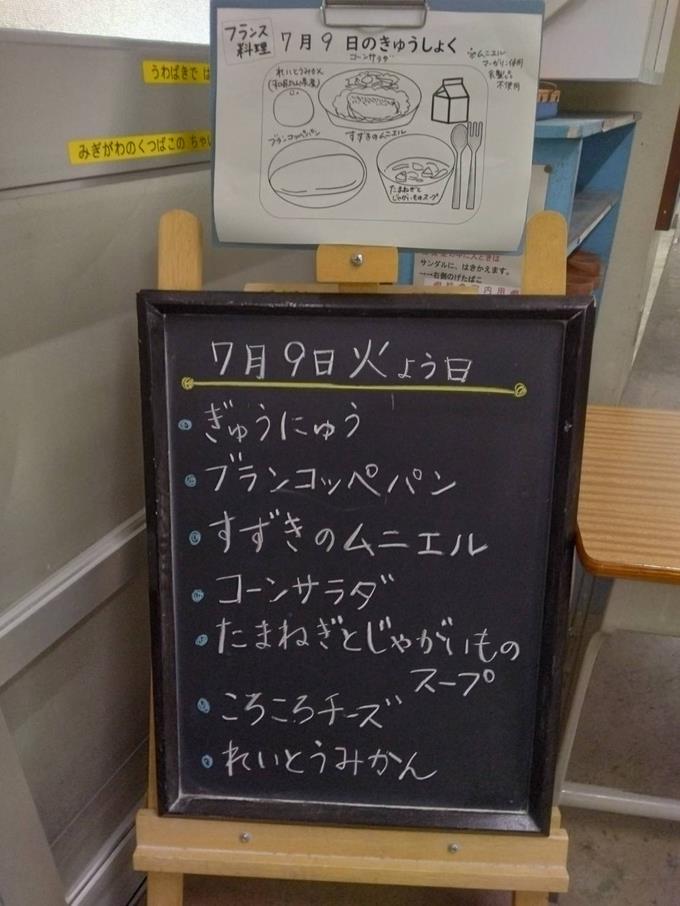 フランス
料理
7月9日のきゅうしょく
コーンサラダ
※ムニエル
マーガリン使用
乳製品
不使用
れいとうみかん
(和歌山県産)
ブランコッペパン
すずきのムニエル
たまねぎと
じゃがいものスープ
うわばきで は
みぎがわのくつばこの ちゃい
サンダルに、はきかえます。
→→右側のげたばこ
7月9日火よう日
ぎゅうにゅう
ブランコッペパン
すずきのムニエル
コーンサラダ
たまねぎとじゃがいもの
スープ
ころころチーズ
れいとうみかん